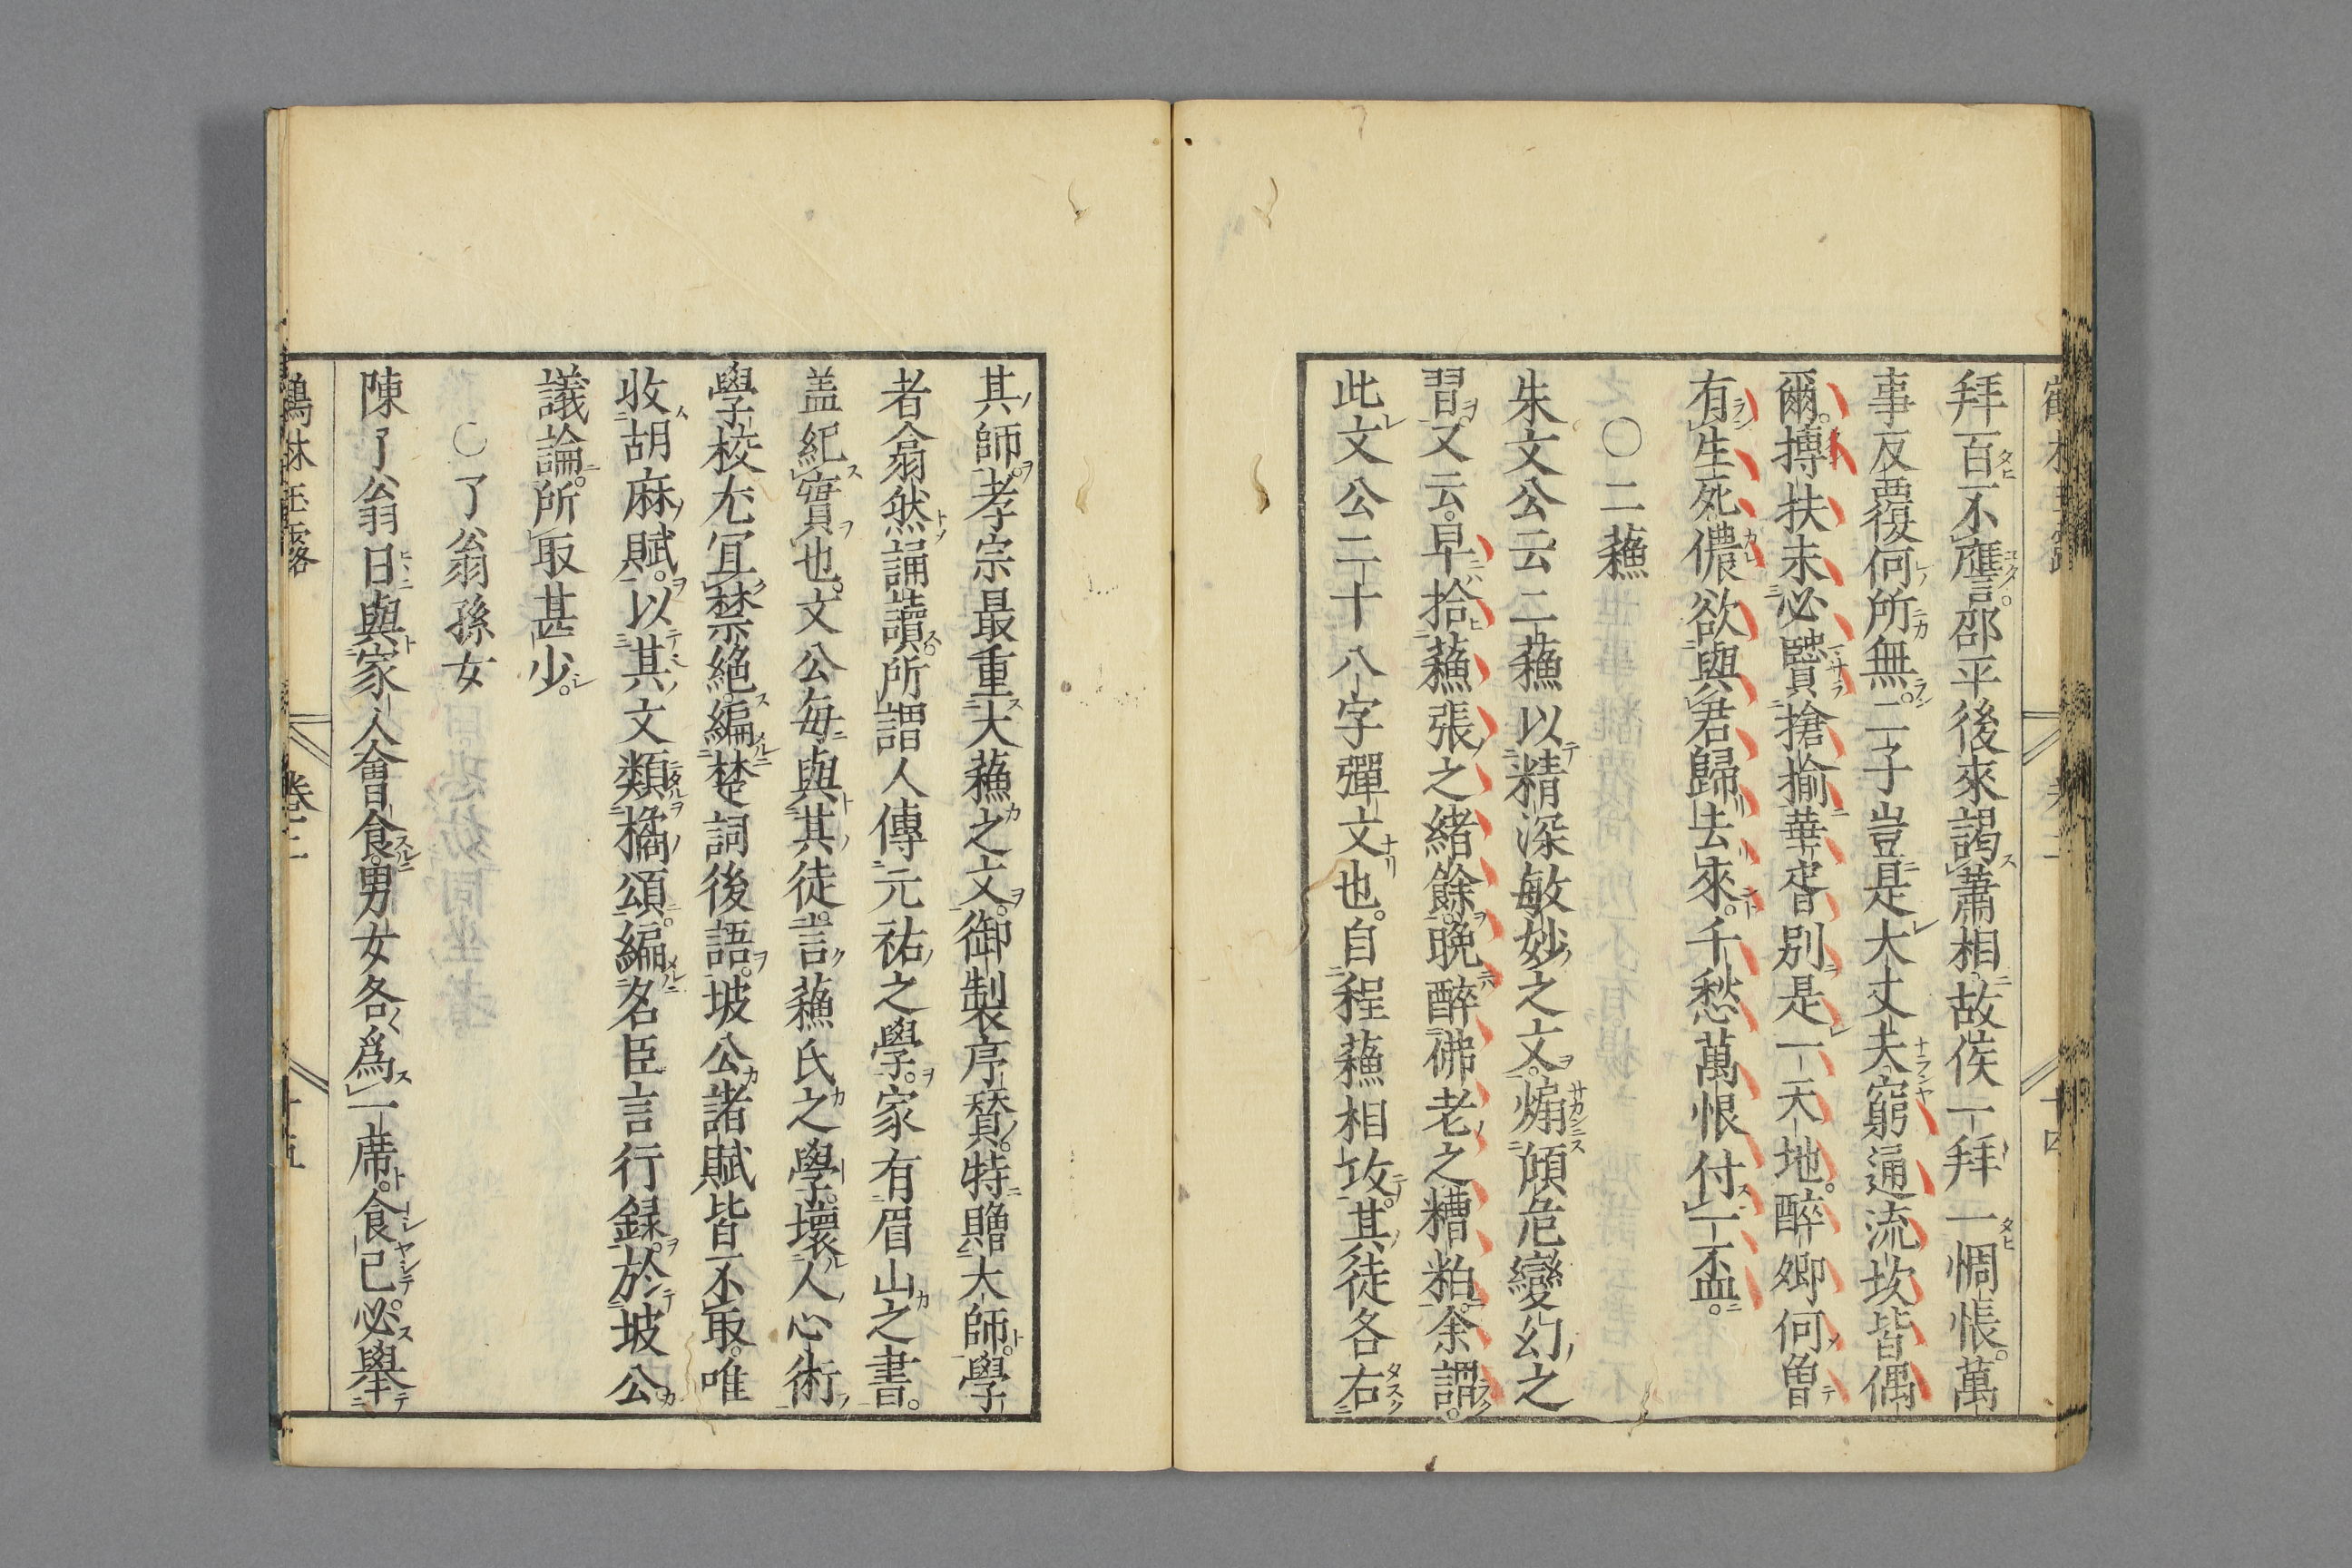 拜百不應言邵平後來謁蕭相故侯一拜一惆悵萬
事反覆何所無二子豈是大丈夫窮通流坎皆偶
爾搏扶未必賢搶揄華胥別是一天地醉鄉何曽
有生死儂欲與君歸去來千愁萬恨付一盃
〇二蘓
朱文公云二蘓以精深敏妙之文煽傾危變幻之
習又云早拾蘓張之緒餘晩醉佛老之糟粕余謂
此文公二十八字彈文也自程蘓相攻其徒各右
其師孝宗最重大蘓之文御製序賛特贈大師學
者翕然誦讀所謂人傳元祐之學家有眉山之書
盖紀實也文公毎與其徒言蘓氏之學壞人心術
學校尤冝禁絶編楚詞後語坡公諸賦皆不取唯
收胡麻賦以其文類橘頌編名臣言行録於坡公
議論所取甚少
〇了翁孫女
陳了翁日與家人會食男女各爲一席食已必舉
鶴林玉露 卷三 十五